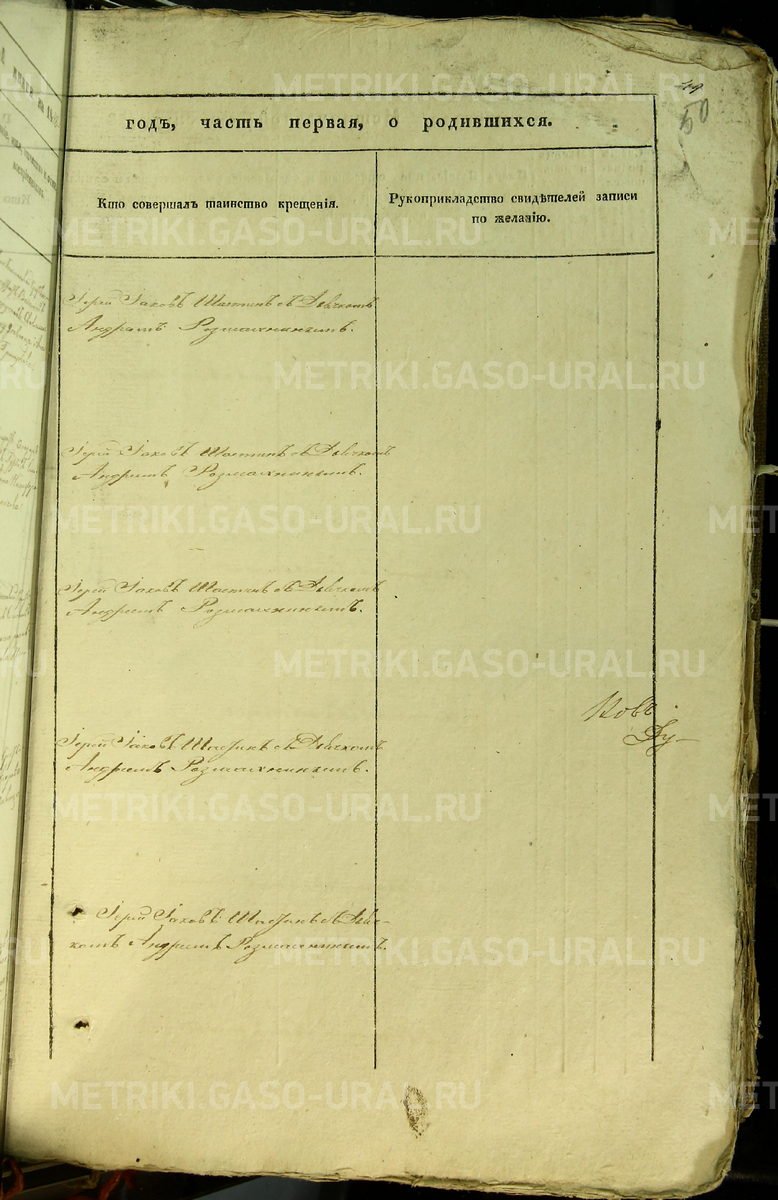 49
50
годъ, часть первая, о родившихся.
Кто совершалъ таинство крещенія.
Рукоприкладство свидѣтелей записи
по желанію.
Іерей Іаковъ Шастинъ съ Дьячкомъ
Андреемъ Розмахнинымъ.
Іерей Іаковъ Шастинъ съ Дьячкомъ
Андреемъ Розмахнинымъ.
Іерей Іаковъ Шастинъ съ Дьячкомъ
Андреемъ Розмахнинымъ.
Іерей Іаковъ Шастинъ съ Дьячкомъ
Андреемъ Розмахнинымъ.
Іерей Іаковъ Шастинъ съ Дьяч-
комъ Андреемъ Розмахнинымъ.
Ду-
METRIKI.GASO-URAL.RU